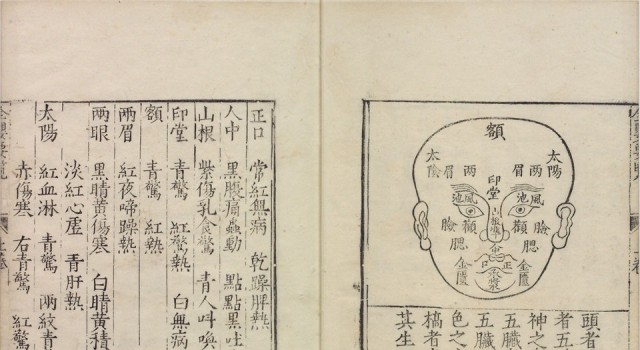 額
太陽
兩眉
印堂
兩眉
太陰
風池
風池
山根
顴
顴
臉
臉
腮
腮
正口
承漿
金匱
金匱
頭者
者五
神之
五臟
五臟
色之
槁者
其生
正口 常紅無病 乾躁脾熱
人中 黑腹痛蟲動 點點黑吐
山根 紫傷乳食驚 青人叫喚
印堂 青驚 紅驚熱 白無病
額 青驚 紅熱
兩眉 紅夜啼躁熱
兩眼 黑睛黃傷寒 白睛黃積
淡紅心虛 青肝熱
太陽 紅血淋 青驚 兩紋青
赤傷寒 右青驚 紅驚